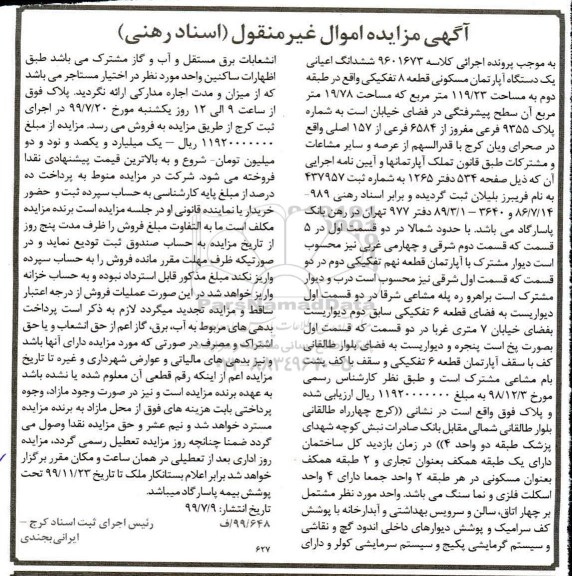 آگهی مزایده اموال غیرمنقول (اسناد رهنی)
به موجب پرونده اجرائی کلاسه ۹۶۰۱۶۷۳ ششدانگ اعیانی
یک دستگاه آپارتمان مسکونی قطعه ۸ تفکیکی واقع در طبقه
دوم به مساحت ۱۱۹/۲۳ متر مربع که مساحت ۱۹/۷۸ متر
مربع آن سطح پیشرفتگی در فضای خیابان است به شماره
پلاک ۹۳۵۵ فرعی مفروز از ۶۵۸۴ فرعی از ۱۵۷ اصلی واقع
در صحرای ویان کرج با قدرالسهم از عرصه و سایر مشاعات
و مشترکات طبق قانون تملک آپارتمانها و آیین نامه اجرایی
آن که ذیل صفحه ۵۳۴ دفتر ۱۲۶۵ به شماره ثبت ۴۳۷۹۵۷
به نام فریبرز بلیلان ثبت گردیده و برابر اسناد رهنی ۹۸۹-
۸۶/۷/۱۴ و ۳۶۴۰ – ۸۹/۳/۱ دفتر ۹۷۷ تهران در رهن بانک
پاسارگاد می باشد. با حدود شمالا در دو قسمت اول در ۵
قسمت که قسمت دوم شرقی و چهارمی غربی نیز محسوب
است دیوار مشترک با آپارتمان قطعه نهم تفکیکی دوم در دو
قسمت که قسمت اول شرقی نیز محسوب است درب و دیوار
مشترک است براهرو ره پله مشاعی شرقا در دو قسمت اول
دیواریست به فضای قطعه ۶ تفکیکی سابق دوم دیواریست
بفضای خیابان ۷ متری غربا در دو قسمت که قسمت اول
بصورت پخ است پنجره و دیواریست به فضای بلوار طالقانی
کف با سقف آپارتمان قطعه ۶ تفکیکی و سقف با کف پشت
بام مشاعی مشترک است و طبق نظر کارشناس رسمی
مورخ ۹۸/۱۲/۳ به مبلغ ۱۱۹۲۰۰۰۰۰۰۰ ریال ارزیابی شده
و پلاک فوق واقع است در نشانی ((کرج چهارراه طالقانی
بلوار طالقانی شمالی مقابل بانک صادرات نبش کوچه شهدای
پزشک طبقه دو واحد ۴)) در زمان بازدید کل ساختمان
دارای یک طبقه همکف بعنوان تجاری و ۲ طبقه همکف
بعنوان مسکونی در هر طبقه ۲ واحد جمعا دارای ۴ واحد
اسکلت فلزی و نما سنگ می باشد. واحد مورد نظر مشتمل
بر چهار اتاق، سالن و سرویس بهداشتی و آبدارخانه با پوشش
کف سرامیک و پوشش دیوارهای داخلی اندود گچ و نقاشی
و سیستم گرمایشی پکیج و سیستم سرمایشی کولر و دارای
انشعابات برق مستقل و آب و گاز مشترک می باشد طبق
اظهارات ساکنین واحد مورد نظر در اختیار مستاجر می باشد
که از میزان و مدت اجاره مدارکی ارائه نگردید. پلاک فوق
از ساعت ۹ الی ۱۲ روز یکشنبه مورخ ۹۹/۷/۲۰ در اجرای
ثبت کرج از طریق مزایده به فروش می رسد. مزایده از مبلغ
۱۱۹۲۰۰۰۰۰۰۰ ریال – یک میلیارد و یکصد و نود و دو
میلیون تومان- شروع و به بالاترین قیمت پیشنهادی نقدا
فروخته می شود. شرکت در مزایده منوط به پرداخت ده
درصد از مبلغ پایه کارشناسی به حساب سپرده ثبت و حضور
خریدار یا نماینده قانونی او در جلسه مزایده است برنده مزایده
مکلف است ما به التفاوت مبلغ فروش را ظرف مدت پنج روز
از تاریخ مزایده به حساب صندوق ثبت تودیع نماید و در
صورتیکه ظرف مهلت مقرر مانده فروش را به حساب سپرده
واریز نکند مبلغ مذکور قابل استرداد نبوده و به حساب خزانه
واریز خواهد شد در این صورت عملیات فروش از درجه اعتبار
ساقط و مزایده تجدید میگردد لازم به ذکر است پرداخت
بدهی های مربوط به آب، برق، گاز اعم از حق انشعاب و یا حق
اشتراک و مصرف در صورتی که مورد مزایده دارای آنها باشد
و نیز بدهی های مالیاتی و عوارض شهرداری و غیره تا تاریخ
مزایده اعم از اینکه رقم قطعی آن معلوم شده یا نشده باشد
به عهده برنده مزایده است و نیز در صورت وجود مازاد، وجوه
پرداختی بابت هزینه های فوق از محل مازاد به برنده مزایده
مسترد خواهد شد و نیم عشر و حق مزایده نقدا وصول می
گردد ضمنا چنانچه روز مزایده تعطیل رسمی گردد، مزایده
روز اداری بعد از تعطیلی در همان ساعت و مکان مقرر برگزار
خواهد شد برابر اعلام بستانکار ملک تا تاریخ ۹۹/۱۱/۲۳ تحت
پوشش بیمه پاسارگاد میباشد.
تاریخ انتشار: ۹۹/۷/۹
۹۹/۶۴۸/ف
رئیس اجرای ثبت اسناد کرج –
ایرانی بجندی
۶۲۷